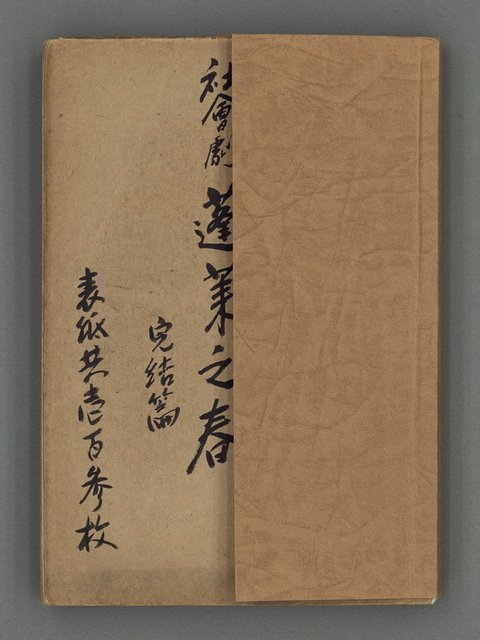 社會劇 蓬萊之春
完結篇
表紙共壱百参枚